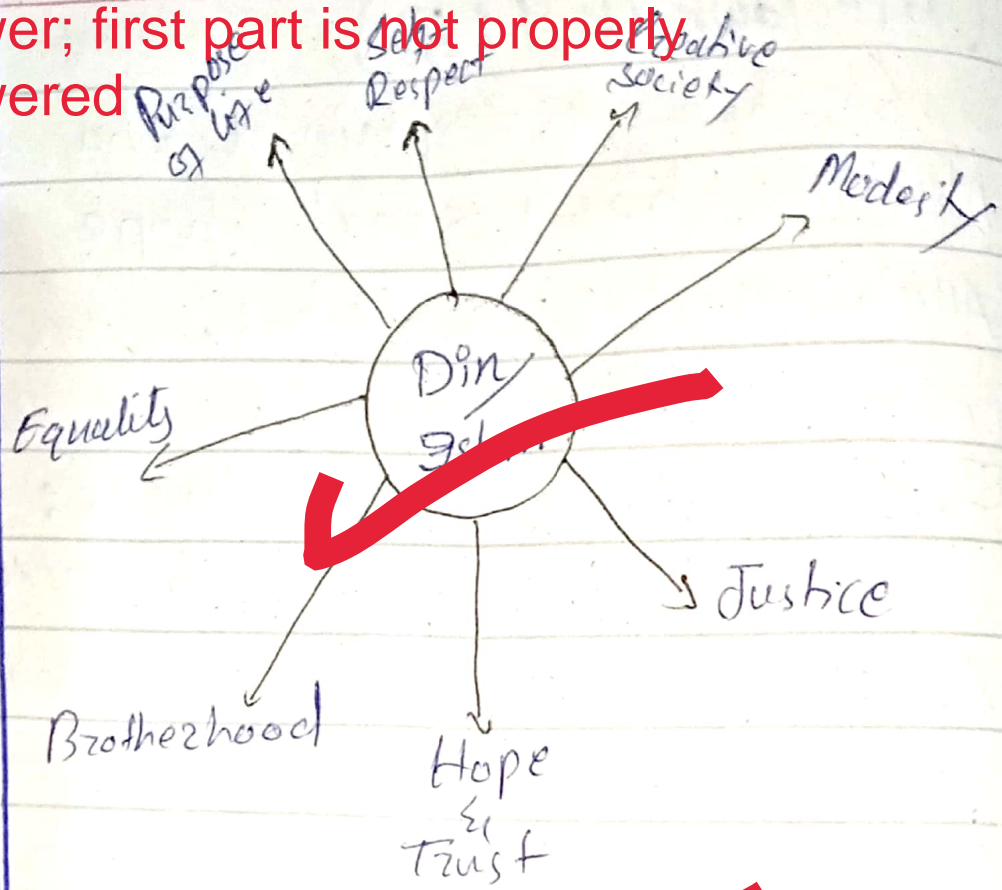 ver; first part is not properly
vered
Purpose
of life
Self
Respect
Creative
Society
Modesity
Din/
Islam
Equality
Justice
Brotherhood
Hope
&
Trust